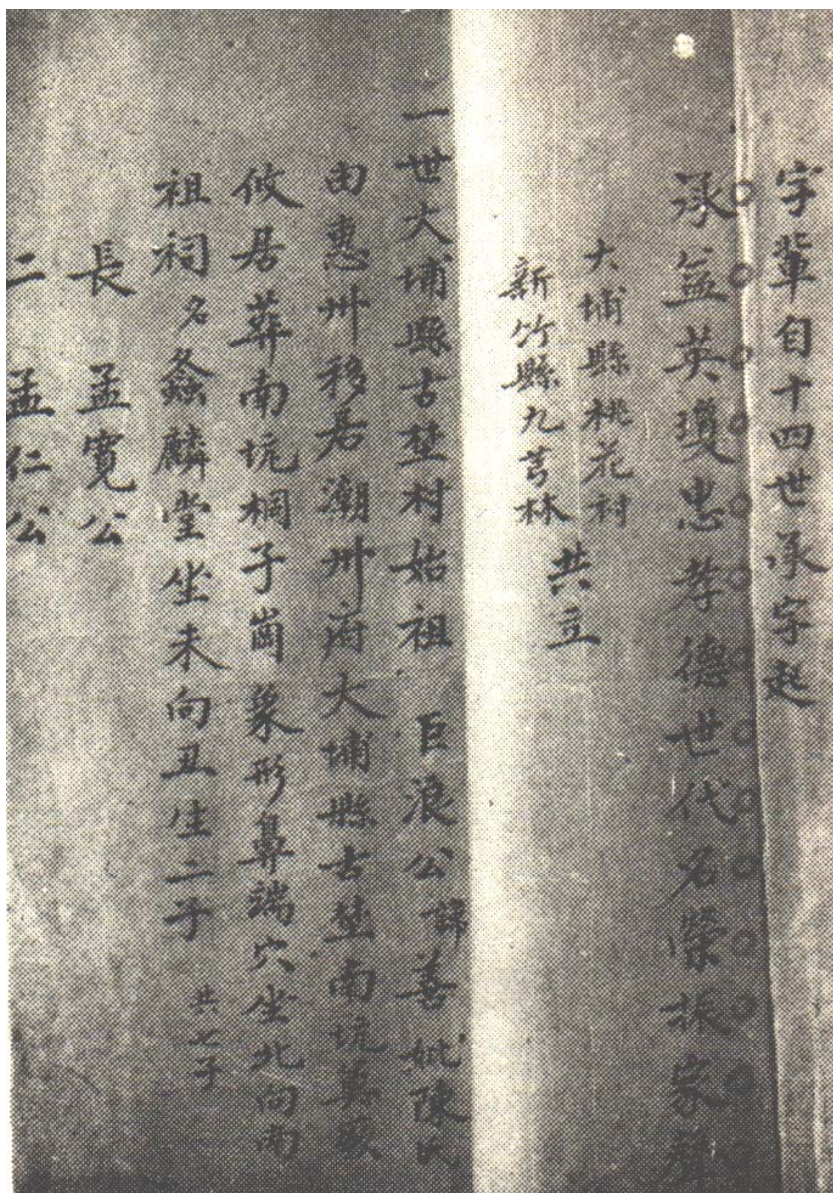 字輩自十四世承字起
承益英瓊忠孝德世代名榮振家聲
大埔縣桃花村
新竹縣九芎林
共立
一世大埔縣古埜村始祖 巨浪公諦善妣陳氏
由惠州移居潮州府大埔縣古埜南坑萬
攸居葬南坑桐子崗象形鼻端穴坐北向南
祖祠名螽麟堂坐未向丑生二子 共七子
長 孟寬公
二 孟仁公